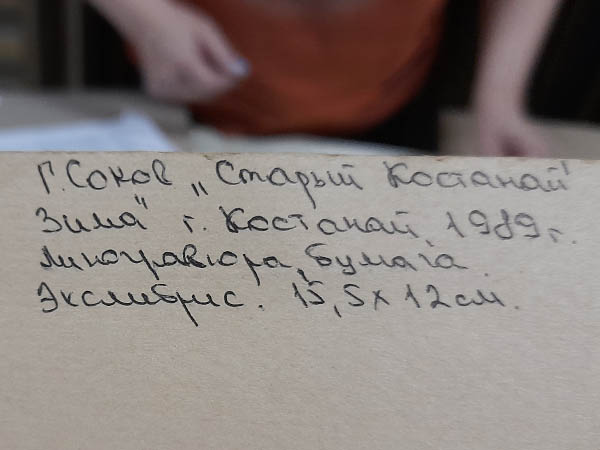 Г. Соков „Старый Костанай
Зима" г. Костанай, 1989 г.
линогравюра, бумага.
Экслибрис. 15,5 х 12 см.